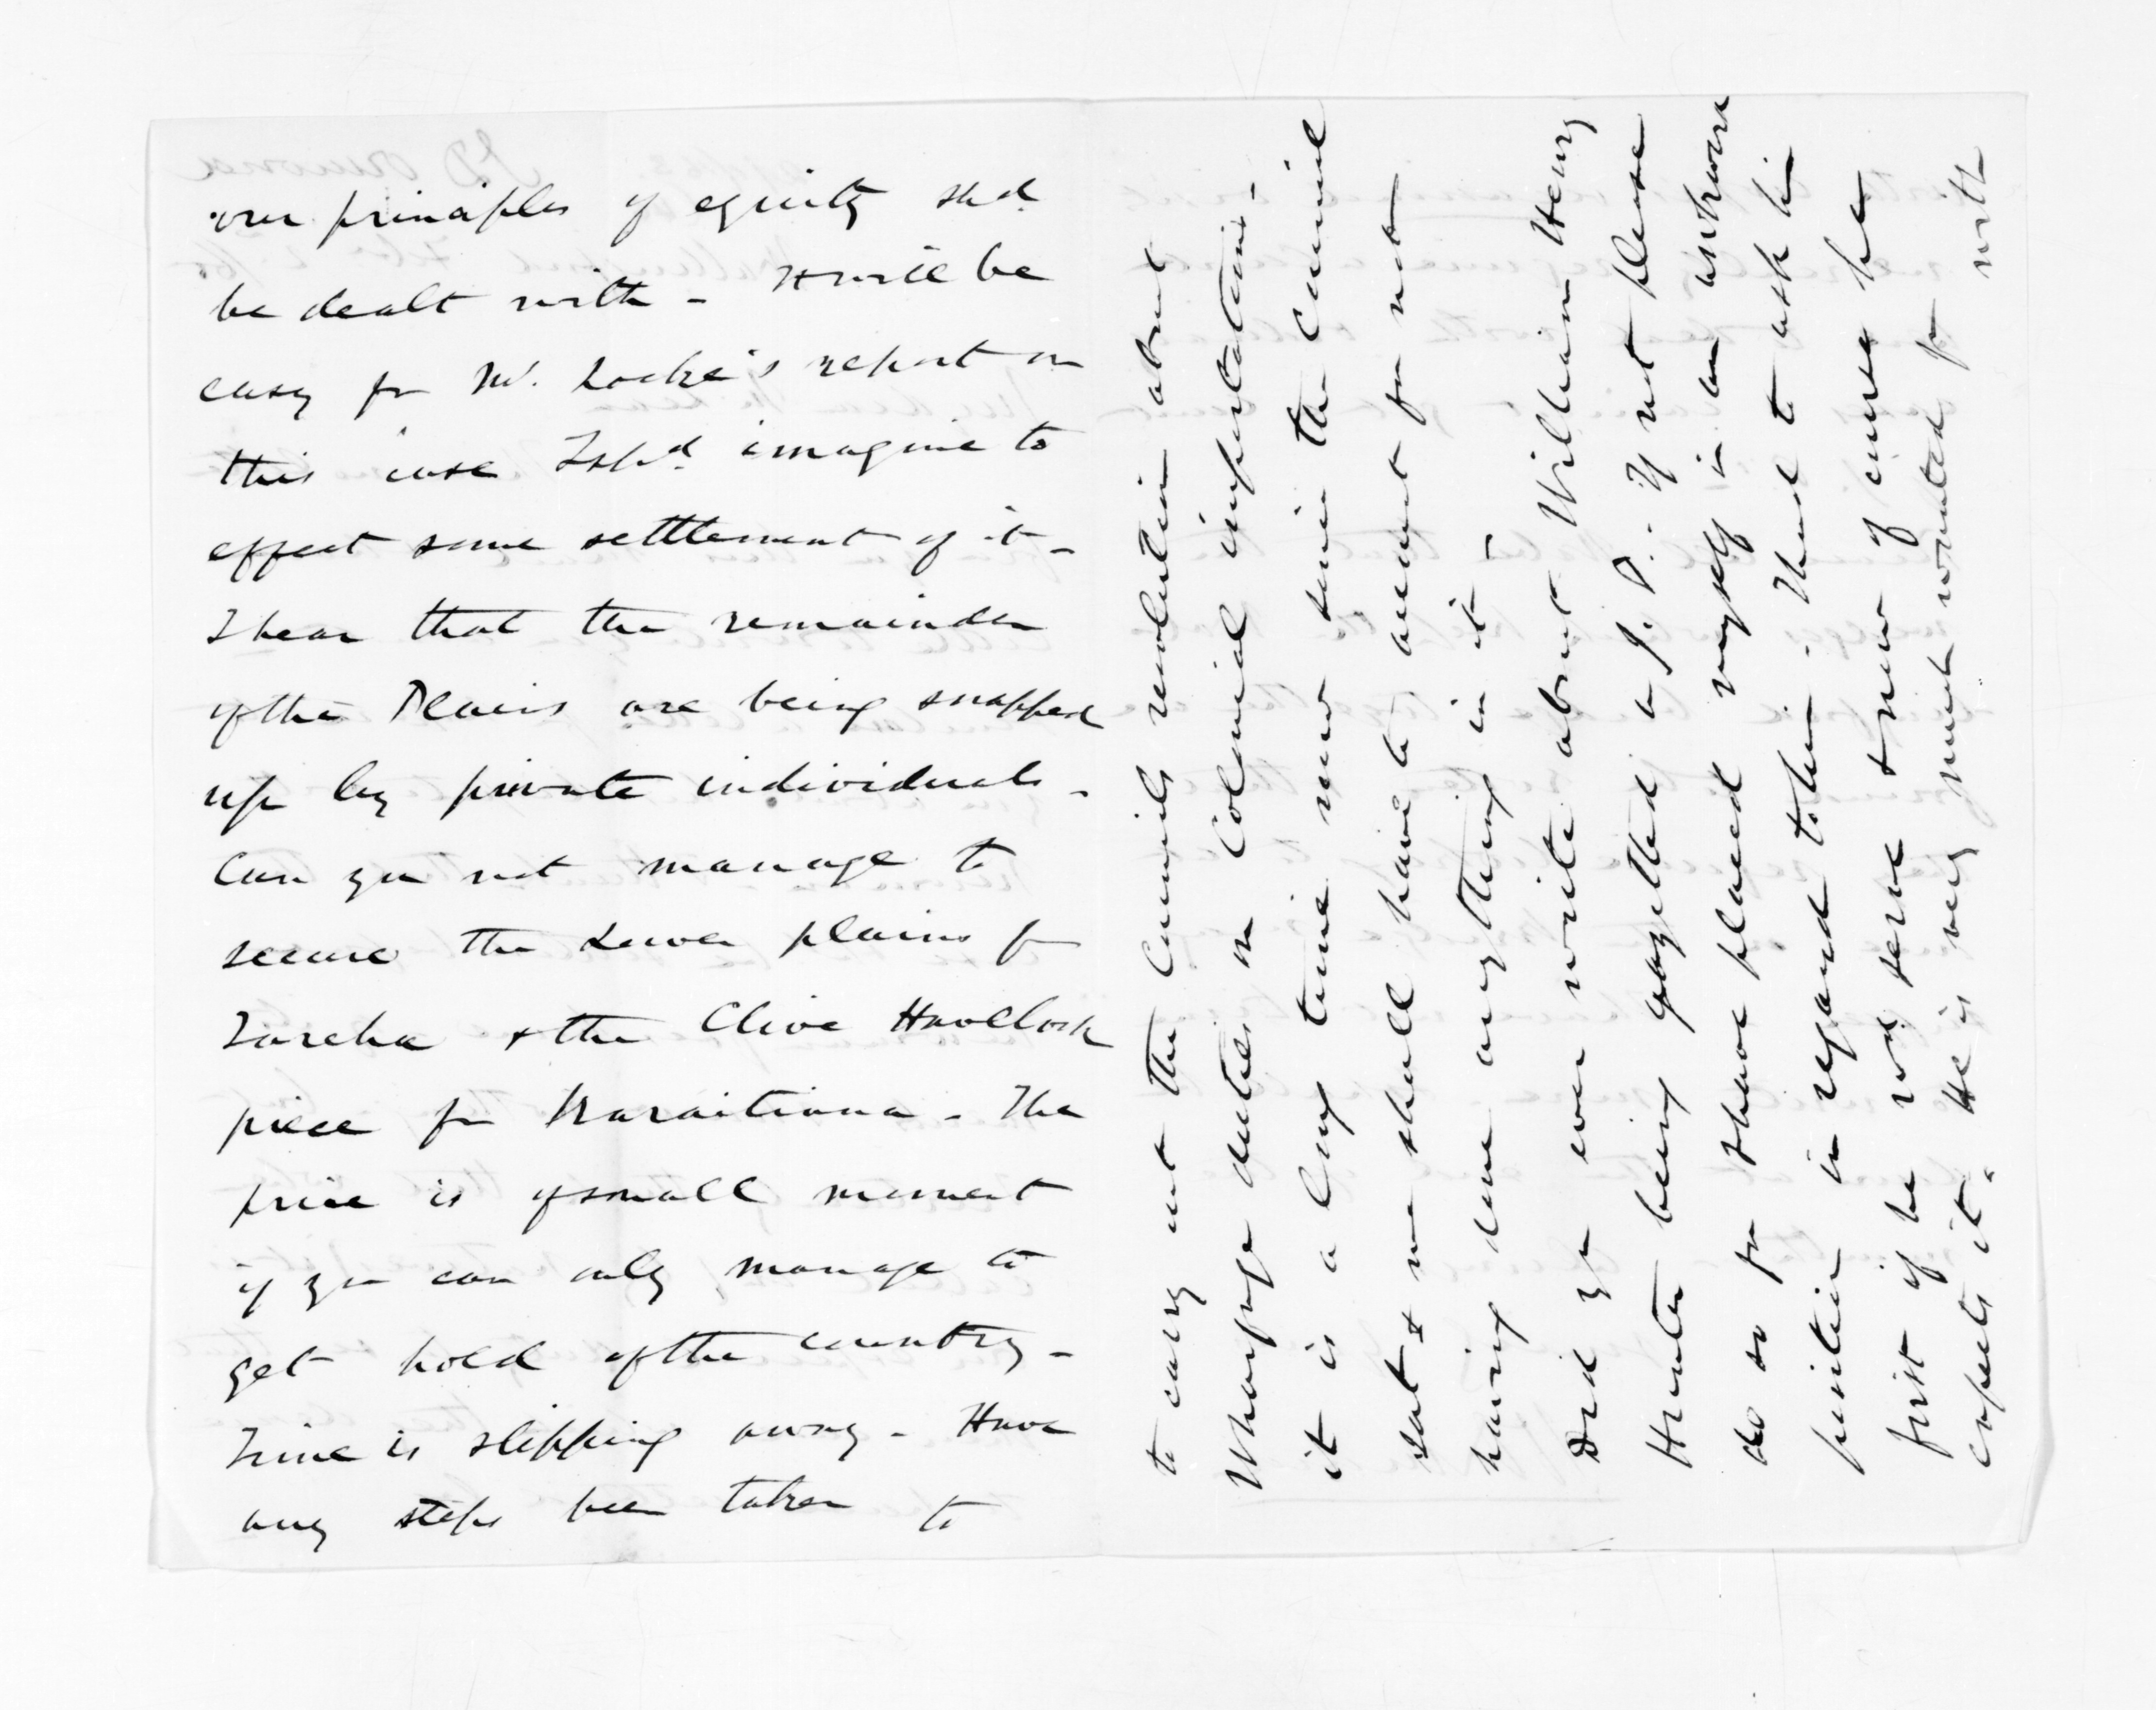 our principles of equity shd.
be dealt with - It will be
easy for Mr. Locke's report on
this case I shd. imagine to
effect some settlement of it -
I hear that the remainder
of the Plains are being snapped
up by private individuals -
Can you not manage to
secure the Lower plains for
Tareha & the Clive Havelock
piece for Karaitiana - The
price is of small moment
if you can only manage to
get hold of the country -
Time is slipping away - Have
any steps been taken to
to carry out the Councils resolution about
Wharfage duties on Colonial importations -
it is a long time now since the Council
sat & we shall have to account for not
having done anything in it -
Did you ever write about William Henry
Hunter being gazetted a J.P. - If not please
do so for I have placed myself in an awkward
position in regard to him - I had to ask him
first if he wd. serve & now of course he
expects it - He is very much wanted for
with